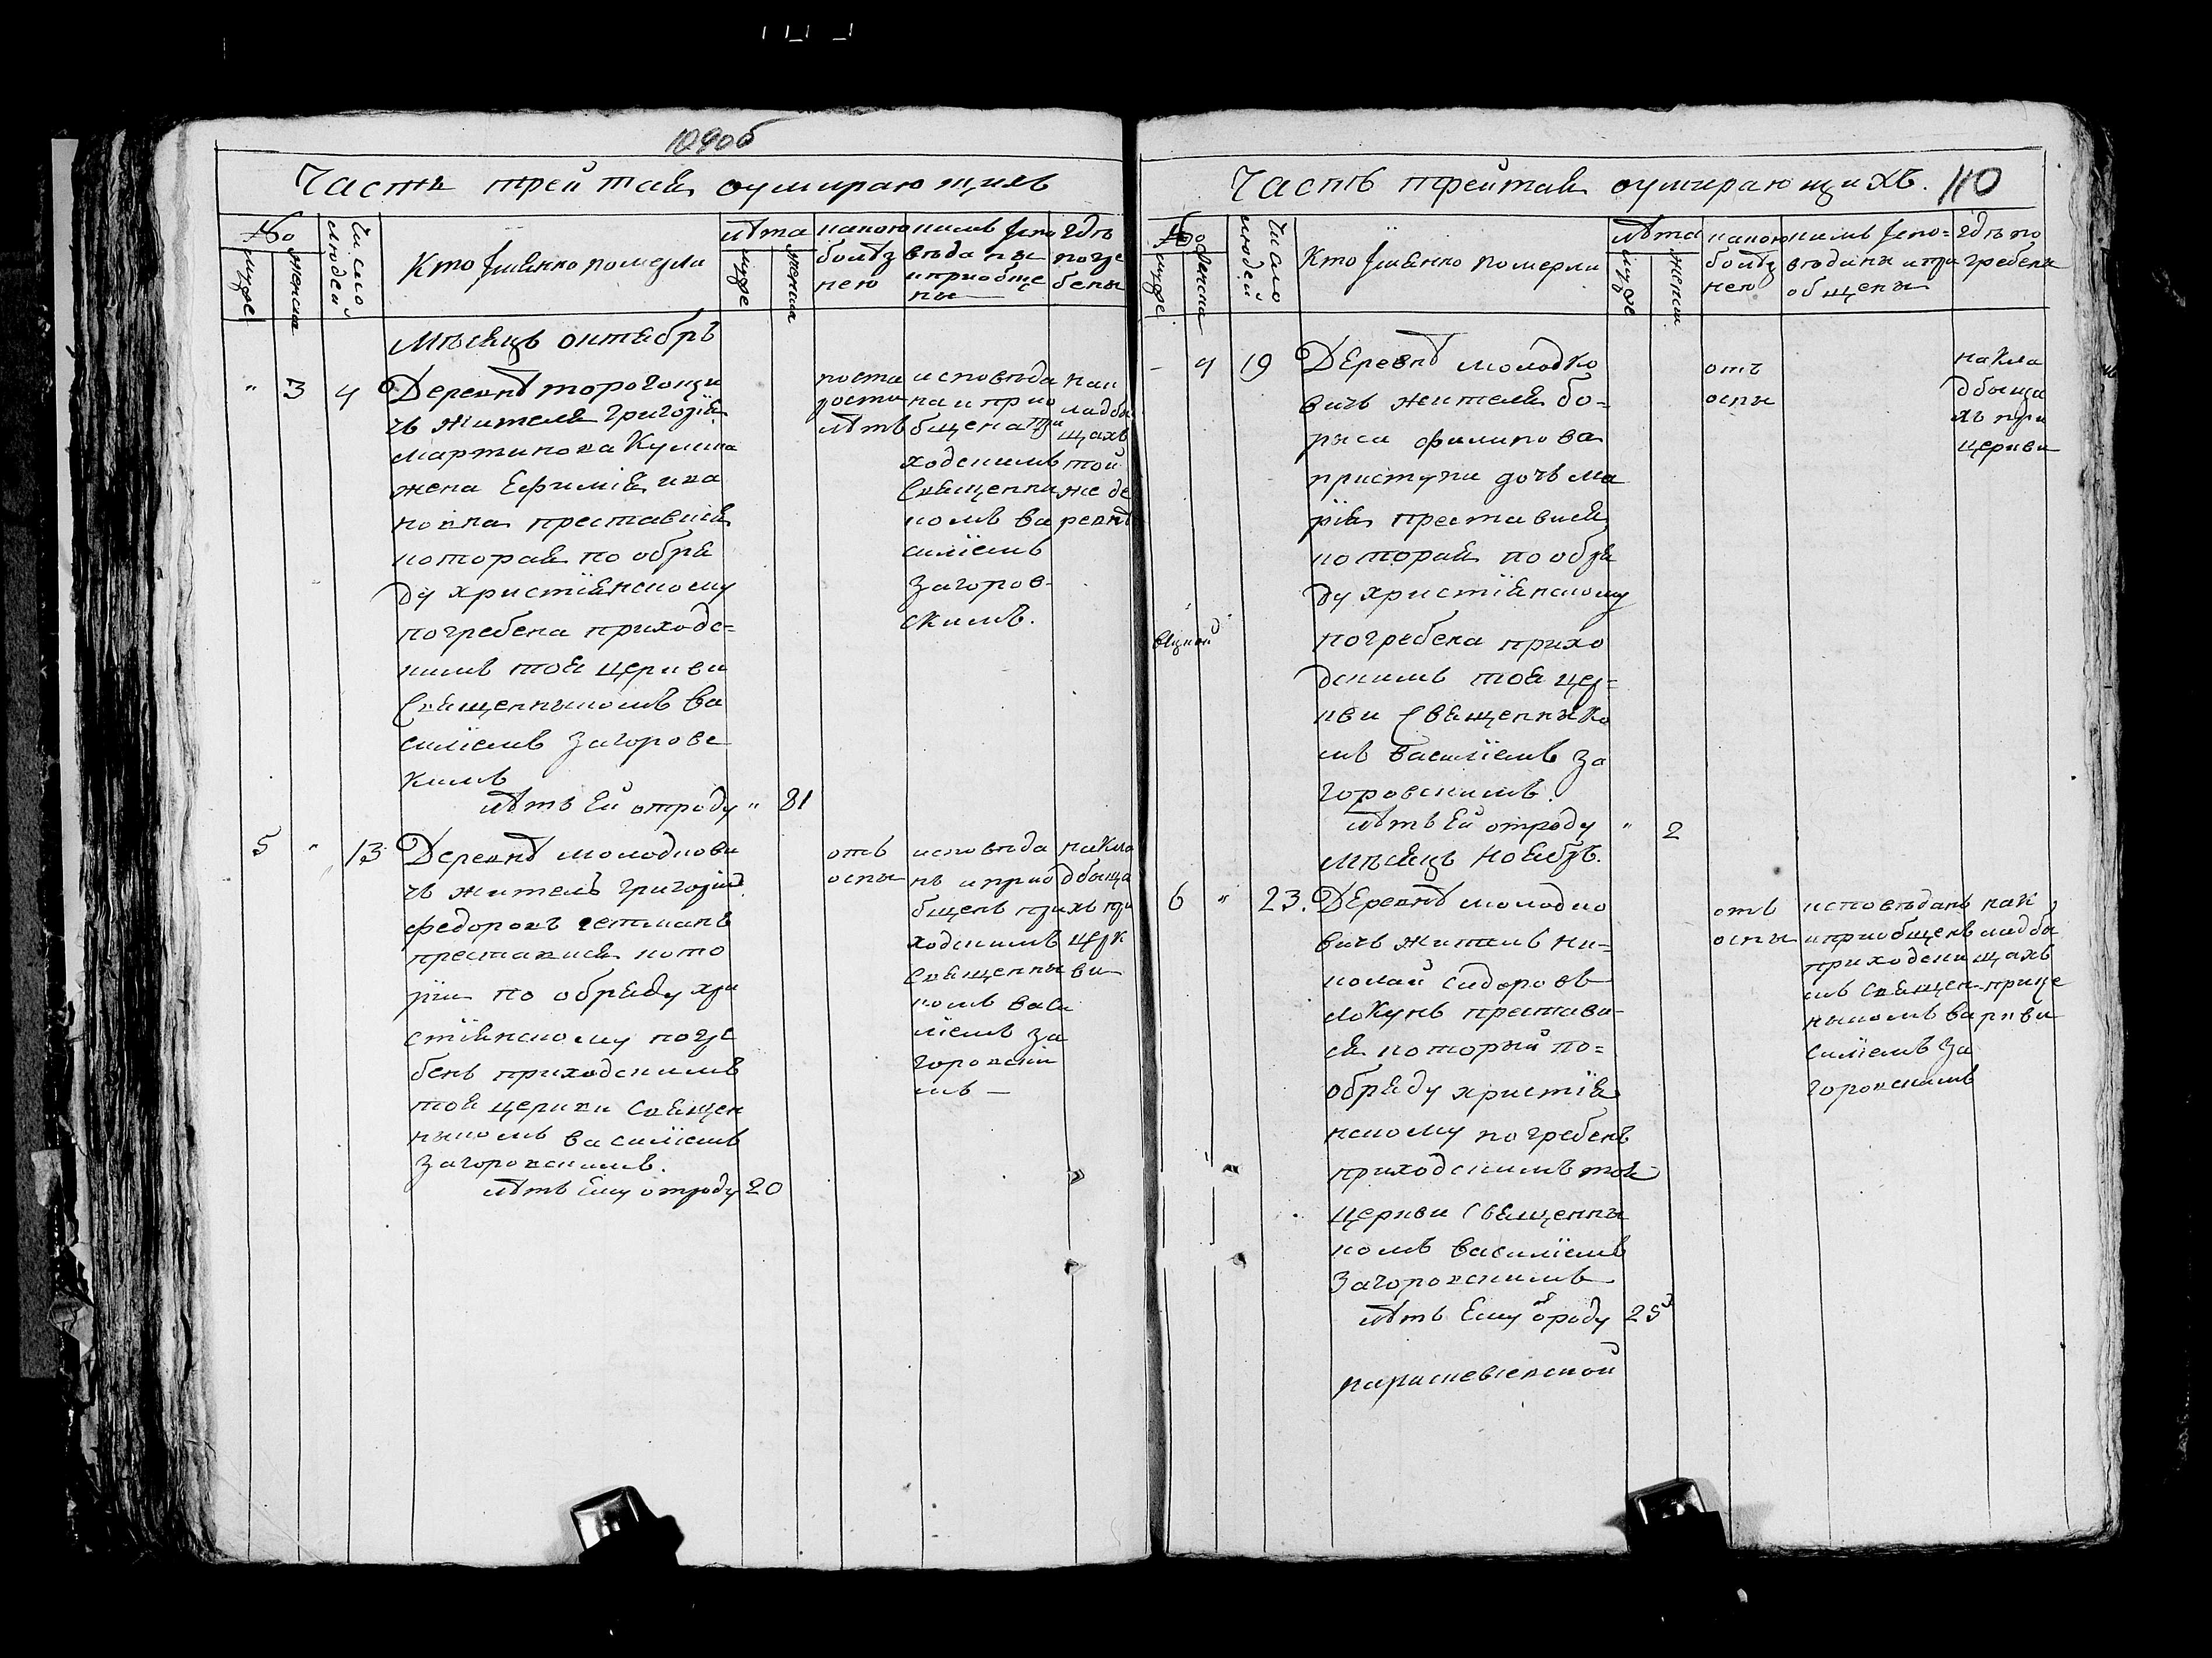 109об
Часть трейтая оумирающихъ
№
муже
женска
Число людей
Кто именно померли
лѣта
муже
женска
какою болѣзнею
кимъ исповѣданы и приобщены
гдѣ погребены
Мѣсяцъ октябръ
" 3 4
Деревнѣ торогонци
чъ жителя григорія
мартинова Кулика
жена Ефимія ива
новна преставися
которая по обря
ду християнскому
погребена приходс=
кимъ тоя церкви
Священныкомъ ва
силіемъ загоровс
кимъ
лѣтъ Ей отроду " 81
постаростилѣтъ
исповѣда
на и прио
бщена при
ходскимъ
Священни
комъ ва
силіемъ
загоров-
скимъ.
на к
ладбы
щахъ
той
же де
ревнѣ
5 " 13
Деревнѣ молодкови
чъ житель григорій
федоровъ гетманъ
преставися кото
рій по обряду хри
стіянскому погре
бенъ приходскимъ
тоя церкви Священ
ныкомъ василіемъ
загоровскимъ.
лѣтъ Ему отроду 20
отъ
оспы
исповѣда
нъ и прио
бщенъ при
ходскимъ
Священны
комъ васи
ліемъ за
горовскі
мъ —
на кла
дбыща
хъ при
церк
ви
Часть трейтая оумирающихъ. 110
№
муже
женска
Число людей
Кто именно померли
лѣта
муже
женск
какою болѣзнею
кимъ испо=вѣданы и приобщены
гдѣ погребены
- 4 19
Деревнѣ молодко
вичъ жителя бо=
рыса филипова
приступи дочъ ма
рія преставися
которая по обря
ду христіянскому
погребена прихо
дскимъ тоя цер=
кви Священныко
мъ василіемъ за
горовскимъ.
лѣтъ Ей отроду " 2
отъ
оспы
на кла
дбыща
хъ при
церкви
мѣсяцъ ноябръ.
6 " 23.
Деревнѣ молодко
вичъ житель ни=
колай сидоровъ
локунь престави-
ся который по=
обряду христія
нскому погребенъ
приходскимъ тоя
церкви Священны
комъ василіемъ
загоровскимъ
лѣтъ Ему отроду 25
отъ
оспы
исповѣданъ
и приобщенъ
приходски
мъ Священ-
ныкомъ ва
силіемъ за
горовскимъ
на к
ладбы
щахъ
при це
ркви
параскевіевской